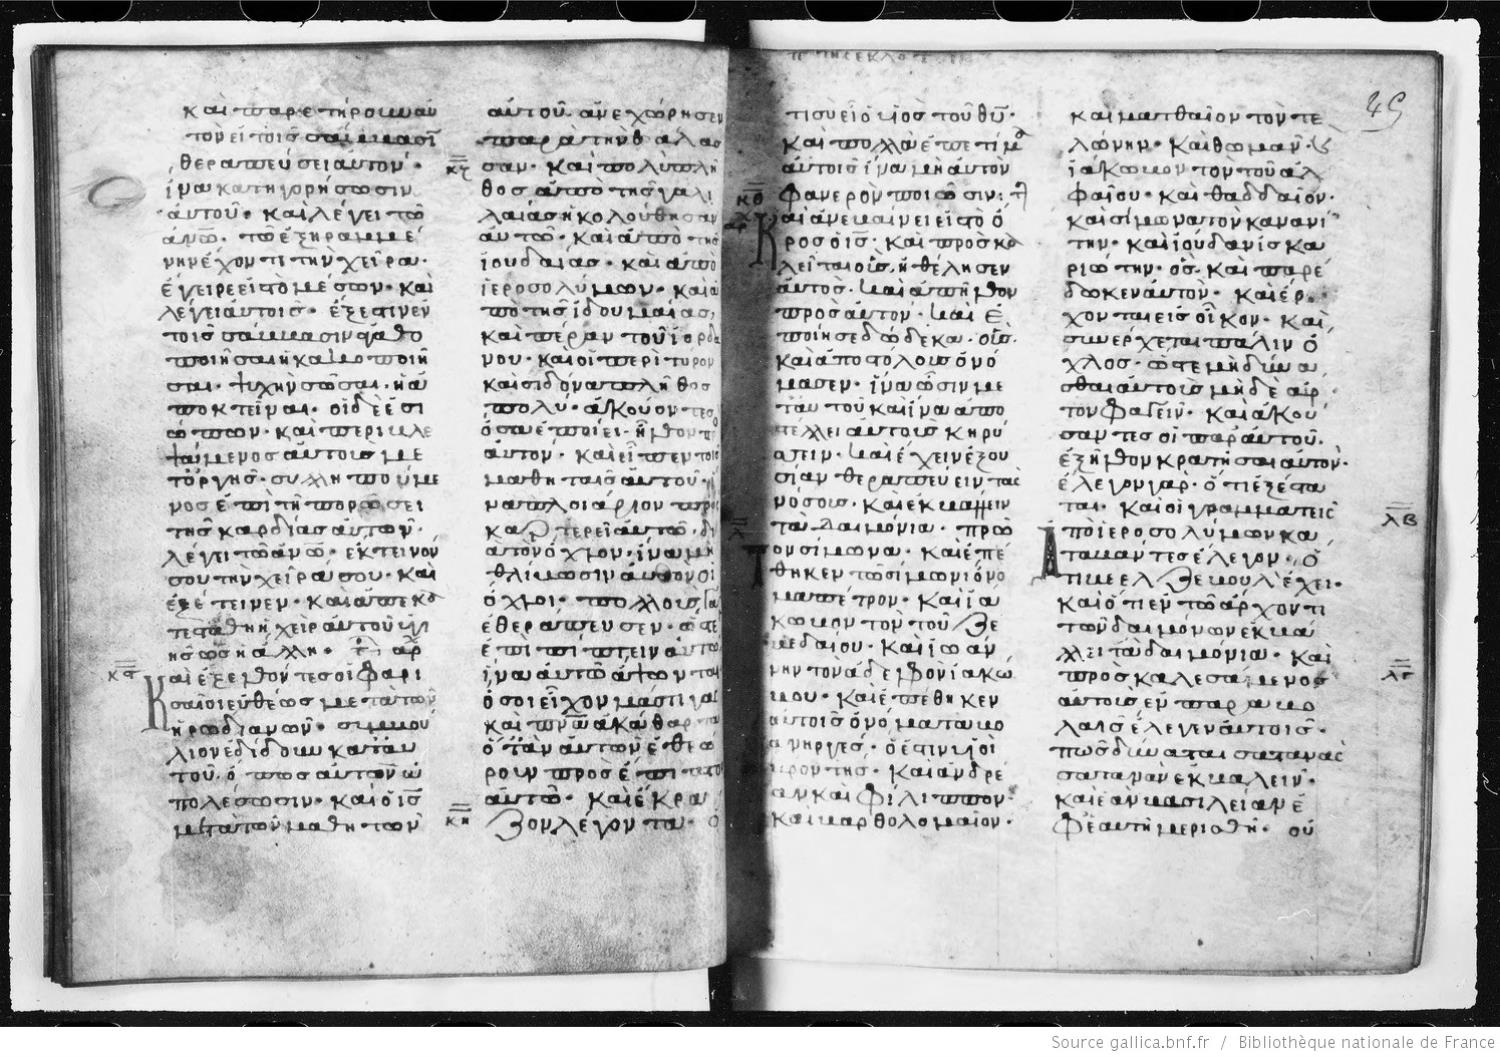 καὶ παρετηροῦν αὐ
τὸν εἰ τοῖς σάββασῒ
θεραπεύσει αὐτόν·
ἵνα κατηγορήσωσιν
αὐτοῦ· καὶ λέγει τῶ
ἀνῶ· τῶ ἐξηραμμέ
νην ἔχοντι τὴν χεῖρα·
ἔγειρε εἰς τὸ μέσον· καὶ
λέγει αὐτοῖς· ἔξεστιν ἐν
τοῖς σάββασιν ἀγαθο
ποιῆσαι ἢ κακοποιῆ
σαι· ψυχὴν σῶσαι· ἢ ἀ
ποκτεῖναι· οἱ δὲ ἐσι
ώπων· καὶ περιβλε
ψάμενος αὐτοὺς με
τ᾽ ὀργῆς· συλλυπούμε
νος ἐπὶ τῆ πορώσει
τῆς καρδίας αὐτῶν·
λέγει τῶ ἀνῶ· ἔκτεινόν
σου τὴν χεῖρά σου· καὶ
ἐξέτεινεν· καὶ ἀπεκα
τεστάθη ἡ χεὶρ αὐτοῦ ὑγι
ὴς ὡς ἡ ἄλλη·
καὶ ἐξελθόντες οἱ φαρι
σαῖοι εὐθέως μετὰ τῶν
ἡρωδιανῶν· συμβού
λιον ἐδίδουν κατ᾽ αὐ
τοῦ· ὅπως αὐτὸν ἀ
πολέσωσιν· καὶ ὁ ισ
μετὰ τῶν μαθητῶν
αὐτοῦ ἀνεχώρησεν
παρὰ τὴν θάλασ
σαν· καὶ πολὺ πλῆ
θος ἀπὸ τῆς γαλι
λαίας ἠκολούθησαν
αὐτῶ· καὶ ἀπὸ τῆς
ἰουδαίας· καὶ ἀπὸ
ἱεροσολύμων· καὶ ἀ
πὸ τῆς ἰδουμαίας·
καὶ πέραν τοῦ ἰορδά
νου· καὶ οἱ περὶ τύρον
καὶ σιδόνα πλῆθος
πολύ· ἀκούοντες
ὅσα ἐποίει· ἦλθον π
αὐτόν· καὶ εἶπεν τοῖς
μαθηταῖς αὐτοῦ·
να πλοιάριον προς
καρτερεῖ αὐτῶ· δι
ὰ τὸν ὄχλον· ἵνα μὴ
θλίβωσιν αὐτὸν οἱ
ὄχλοι· πολλοὺς γὰρ
ἐθεράπευσεν· ὥστε
ἐπιπίπτειν αὐτῶ
ἵνα αὐτῶ ἅψωνται
ὅσοι εἶχον μάστιγας
καὶ τὰ πνα τὰ ἀκάθαρτα
ὅταν αὐτὸν ἐθεώ
ρουν προσέπιπτον
αὐτῶ· καὶ ἔκρα
ζον λέγοντα· ὁ
τι σὺ εἶ ὁ υἱὸς τοῦ θυ·
καὶ πολλὰ ἐπετίμα
αὐτοῖς ἵνα μὴ αὐτὸν
φανερὸν ποιῶσιν:
καὶ ἀναβαίνει εἰς τὸ ὄ
ρος ὁ ισ· καὶ προσκα
λεῖται οὓς ἤθελησεν
αὐτός· καὶ ἀπῆλθον
πρὸς αὐτόν· καὶ ἐ
ποίησε δώδεκα· οὓς
καὶ ἀποστόλους ὀνό
μασεν· ἵνα ὦσιν με
τ᾽ αὐτοῦ καὶ ἵνα ἀπο
στέλλει αὐτοὺς κηρύ
σσειν· καὶ ἔχειν ἐξου
σίαν θεραπεύειν τὰς
νόσους· καὶ ἐκβάλλειν
τὰ δαιμόνια· πρῶ
τον σίμωνα· καὶ ἐπέ
θηκεν τῶ σίμωνι ὄνο
μα πέτρον· καὶ ἰά
κωβον τὸν τοῦ ζε
βεδαίου· καὶ ἰωάν
νην τὸν ἀδελφὸν ἰακώ
βου· καὶ ἐπέθηκεν
αὐτοῖς ὀνόματα βο
ανηργές· ὅ ἐστιν υἱοὶ
βροντῆς· καὶ ἀνδρέ
αν καὶ φίλιππον·
καὶ βαρθολομαῖον·
καὶ ματθαῖον τὸν τε
λώνην· καὶ θωμᾶν·
ἰάκωβον τὸν τοῦ ἀλ
φαίου· καὶ θαδδαῖον·
καὶ σίμωνα τὸν κανανί
την· καὶ ἰούδαν ἰσκα
ριώτην· ὃς καὶ παρέ
δωκεν αὐτόν· καὶ ἔρ
χονται εἰς οἶκον· καὶ
συνέρχεται πάλιν ὁ
χλος· ὥστε μὴ δύνα
σθαι αὐτοὺς μηδὲ ἄρ
τον φαγεῖν· καὶ ἀκού
σαντες οἱ παρ᾽ αὐτοῦ·
ἐξῆλθον κρατῆσαι αὐτόν·
ἔλεγον γὰρ· ὅτι ἐξέστα
ται· καὶ οἱ γραμματεῖς
ἀπὸ ἱεροσολύμων κα
ταβάντες ἔλεγον· ὅ
τι βεελζεβοὺλ ἔχει·
καὶ ὅτι ἐν τῶ ἄρχοντι
τῶν δαιμόνων ἐκβά
λλει τὰ δαιμόνια· καὶ
προσκαλεσάμενος
αὐτοὺς ἐν παραβο
λαῖς ἔλεγεν αὐτοῖς·
πῶς δύναται σατανᾶς
σατανᾶν ἐκβαλεῖν·
καὶ ἐὰν βασιλεία ἐ
φ᾽ ἑαυτὴ μερισθῆ· οὐ
Source gallica.bnf.fr / Bibliothèque nationale de France